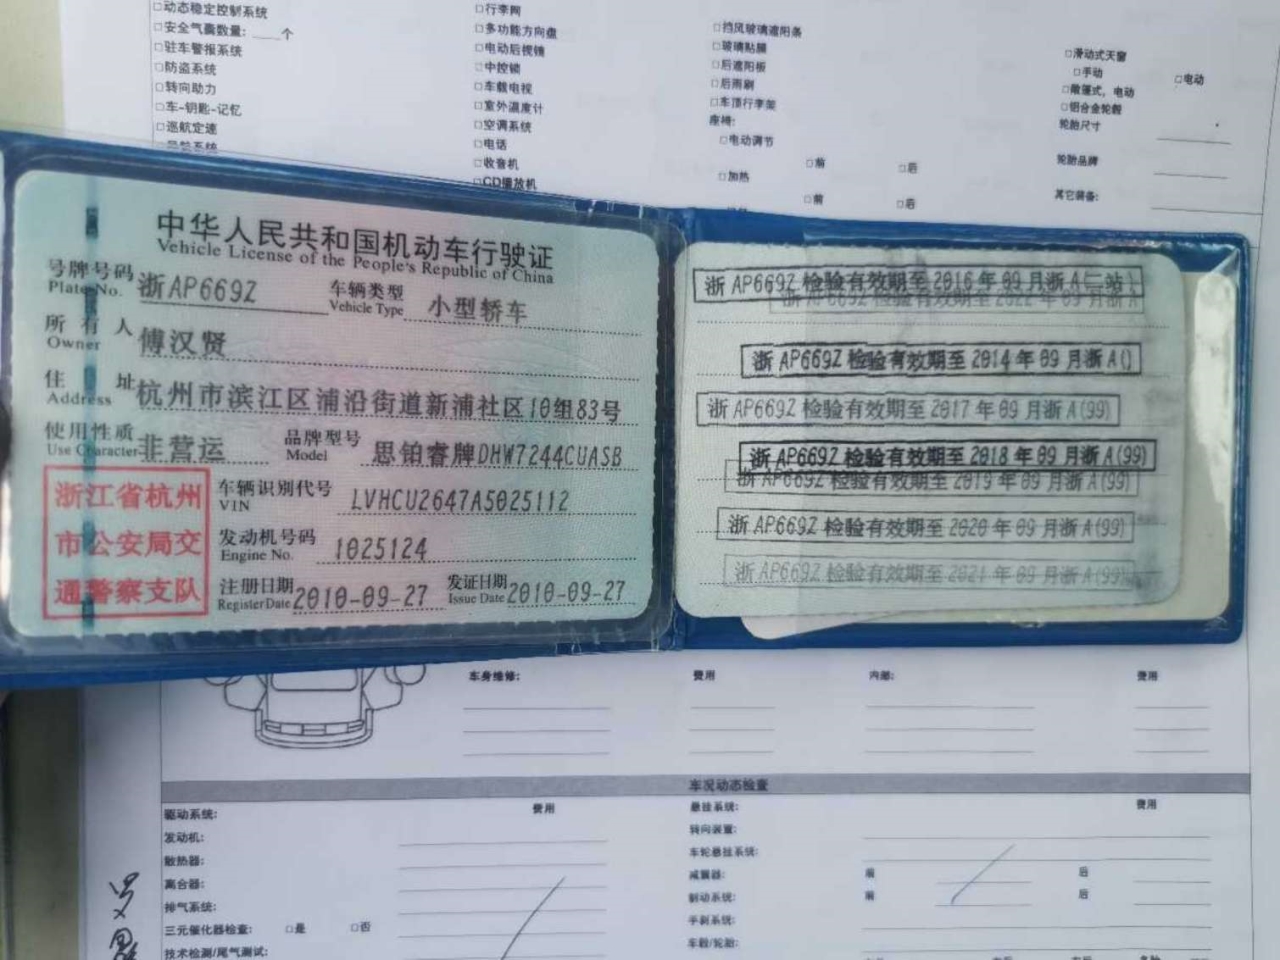 □动态稳定控制系统
□安全气囊数量: ____个
□驻车警报系统
□防盗系统
□转向助力
□车-钥匙-记忆
□巡航定速
□行李网
□多功能方向盘
□电动后视镜
□中控锁
□车载电视
□室外温度计
□空调系统
□电话
□收音机
□CD播放机
□挡风玻璃遮阳条
□玻璃贴膜
□后遮阳板
□后雨刷
□车顶行李架
座椅:
□电动调节
□前 □后
□加热
□前 □后
□滑动式天窗
□手动 □电动
□敞篷式,电动
□铝合金轮毂
轮胎尺寸
轮胎品牌
其它装备:
中华人民共和国机动车行驶证
Vehicle License of the People's Republic of China
号牌号码 浙AP669Z 车辆类型 小型轿车
Plate No. Vehicle Type
所有人 傅汉贤
Owner
住址 杭州市滨江区浦沿街道新浦社区10组83号
Address
使用性质 非营运 品牌型号 思铂睿牌DHW7244CUASB
Use Character Model
浙江省杭州
市公安局交
通警察支队
车辆识别代号 LVHCU2647A5025112
VIN
发动机号码 1025124
Engine No.
注册日期 2010-09-27 发证日期 2010-09-27
Register Date Issue Date
浙AP669Z检验有效期至2016年09月浙A(二站)
浙AP669Z检验有效期至2022年09月浙A
浙AP669Z检验有效期至2014年09月浙A()
浙AP669Z检验有效期至2017年09月浙A(99)
浙AP669Z检验有效期至2018年09月浙A(99)
浙AP669Z检验有效期至2019年09月浙A(99)
浙AP669Z检验有效期至2020年09月浙A(99)
浙AP669Z检验有效期至2021年09月浙A(99)
车身维修: 费用 内部: 费用
车况动态检查
驱动系统: 费用
发动机:
散热器:
离合器:
排气系统:
三元催化器检查: □是 □否
技术检测/尾气测试:
悬挂系统: 费用
转向装置:
车轮悬挂系统:
减震器: 前 后
制动系统: 前 后
手刹系统:
车毂/轮胎: